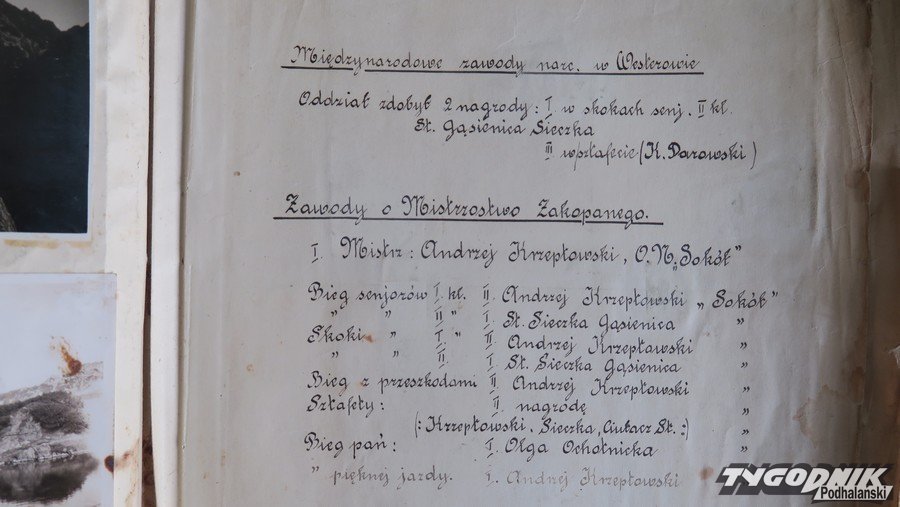 Międzynarodowe zawody narc. w Westerowie
Oddział zdobył 2 nagrody: I. w skokach senj. II kl.
St. Gąsienica Sieczka
III w sztafecie (K. Darowski)
Zawody o Mistrzostwo Zakopanego.
I. Mistrz: Andrzej Krzeptowski, O.N. „Sokół"
Bieg senjorów I. kl. II. Andrzej Krzeptowski „Sokół"
" " II " I. St. Sieczka Gąsienica "
Skoki " I " II. Andrzej Krzeptawski "
" " II. I. St. Sieczka Gąsienica "
Bieg z przeszkodami II. Andrzej Krzeptowski "
Sztafety: II. nagrodę "
(: Krzeptowski, Sieczka, Ciułacz St. :) "
Bieg pań: I. Olga Ochotnicka "
" pięknej jazdy. I. Andrzej Krzeptowski
TYGODNIK
Podhalański